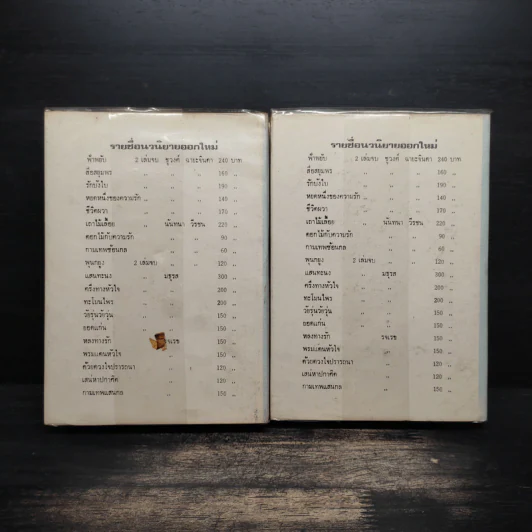 รายชื่อนวนิยายออกใหม่
ฟ้าหยับ 2 เล่มจบ ชูวงศ์ ฉายะจินดา 240 บาท
สื่อสตุแพร „ „ „ 160 „
รักบังใบ „ „ „ 190 „
หยดหนึ่งของความรัก „ „ „ 140 „
ชีวิตผวา „ „ „ 170 „
เถาไม้เลื้อย „ นันทนา วีรชน 220 „
ดอกไม้กับความรัก „ „ 90 „
กามเทพซ้อนกล „ „ 60 „
พุนกลูง 2 เล่มจบ „ „ 120 „
แสนทะนง „ มธุรส 300 „
ครึ่งทางหัวใจ „ „ 200 „
ทะโมนไพร „ „ 200 „
วัยรุ่นวัยวุ่น „ „ 150 „
ยอดแก่น „ „ 150 „
หลงทางรัก „ 150 „
พรมแดนหัวใจ „ „ 150 „
ด้วยดวงใจปรารถนา „ „ 120 „
เสน่หาปราศัย „ „ 120 „
กามเทพแสนกล „ „ 150 „
รายชื่อนวนิยายออกใหม่
ฟ้าหยับ 2 เล่มจบ ชูวงศ์ ฉายะจินดา 240 บาท
สื่อสตุแพร „ „ „ 160 „
รักบังใบ „ „ „ 190 „
หยดหนึ่งของความรัก „ „ „ 140 „
ชีวิตผวา „ „ „ 170 „
เถาไม้เลื้อย „ นันทนา วีรชน 220 „
ดอกไม้กับความรัก „ „ 90 „
กามเทพซ้อนกล „ „ 60 „
พุนกลูง 2 เล่มจบ „ „ 120 „
แสนทะนง „ มธุรส 300 „
ครึ่งทางหัวใจ „ „ 200 „
ทะโมนไพร „ „ 200 „
วัยรุ่นวัยวุ่น „ „ 150 „
ยอดแก่น „ „ 150 „
หลงทางรัก „ รจเรข 150 „
พรมแดนหัวใจ „ „ 150 „
ด้วยดวงใจปรารถนา „ „ 120 „
เสน่หาปราศัย „ „ 120 „
กามเทพแสนกล „ „ 150 „